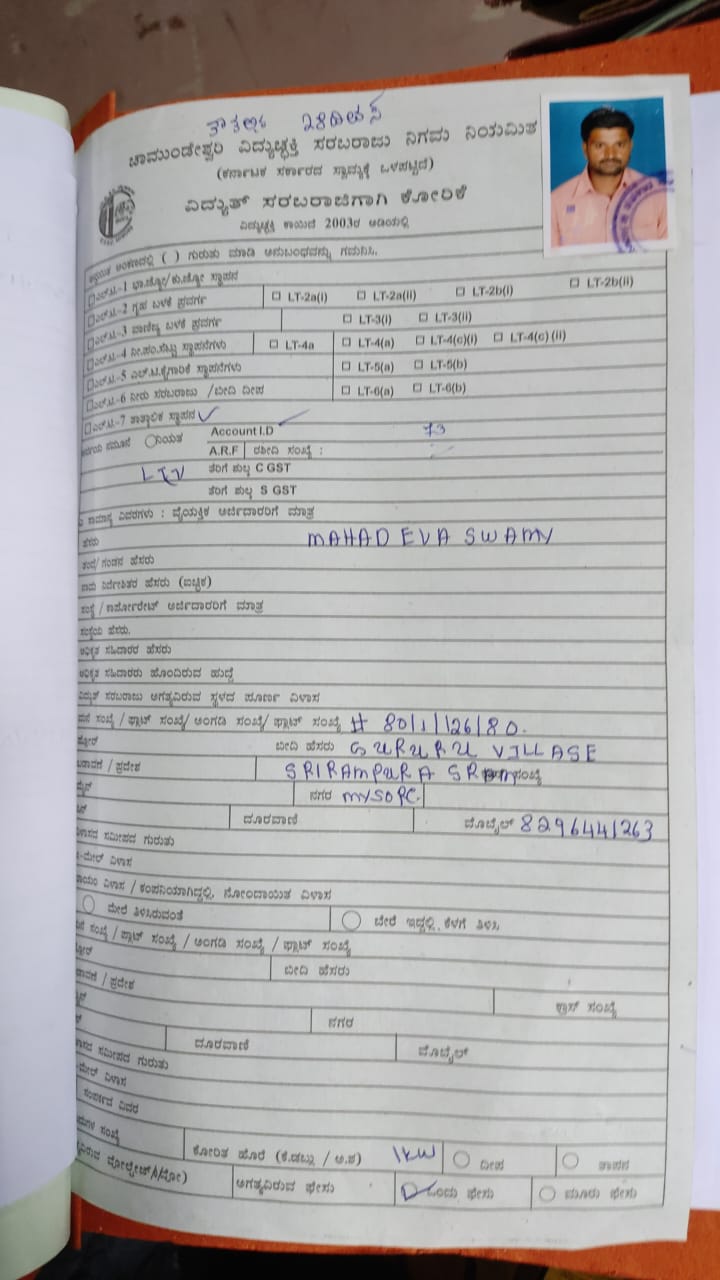 ಚಾಮುಂಡೇಶ್ವರಿ ವಿದ್ಯುಚ್ಛಕ್ತಿ ಸರಬರಾಜು ನಿಗಮ ನಿಯಮಿತ
(ಕರ್ನಾಟಕ ಸರ್ಕಾರದ ಸ್ವಾಮ್ಯಕ್ಕೆ ಒಳಪಟ್ಟಿದೆ)
ವಿದ್ಯುತ್ ಸರಬರಾಜಿಗಾಗಿ ಕೋರಿಕೆ
ವಿದ್ಯುಚ್ಛಕ್ತಿ ಕಾಯಿದೆ 2003ರ ಅಡಿಯಲ್ಲಿ
( ) ಗುರುತು ಮಾಡಿ ಅನುಬಂಧವನ್ನು ಗಮನಿಸಿ.
ಎಲ್.ಟಿ.-1 ಭಾ.ಜ್ಯೋ/ಕು.ಜ್ಯೋ ಸ್ಥಾಪನ
ಎಲ್.ಟಿ.-2 ಗೃಹ ಬಳಕೆ ಪ್ರವರ್ಗ LT-2a(i) LT-2a(ii) LT-2b(i) LT-2b(ii)
ಎಲ್.ಟಿ.-3 ವಾಣಿಜ್ಯ ಬಳಕೆ ಪ್ರವರ್ಗ LT-3(i) LT-3(ii)
ಎಲ್.ಟಿ.-4 ನೀ.ಪಂ.ಸೆಟ್ಟು ಸ್ಥಾಪನೆಗಳು LT-4a LT-4(a) LT-4(c)(i) LT-4(c)(ii)
ಎಲ್.ಟಿ.-5 ಎಲ್.ಟಿ.ಕೈಗಾರಿಕೆ ಸ್ಥಾಪನೆಗಳು LT-5(a) LT-5(b)
ಎಲ್.ಟಿ.-6 ನೀರು ಸರಬರಾಜು /ಬೀದಿ ದೀಪ LT-6(a) LT-6(b)
ಎಲ್.ಟಿ.-7 ತಾತ್ಕಾಲಿಕ ಸ್ಥಾಪನ
ನಮೂನೆ ನಿಯತ Account I.D 73
A.R.F ರಶೀದಿ ಸಂಖ್ಯೆ :
ತೆರಿಗೆ ಶುಲ್ಕ C GST
ತೆರಿಗೆ ಶುಲ್ಕ S GST
ಸಾಮಾನ್ಯ ವಿವರಗಳು : ವೈಯಕ್ತಿಕ ಅರ್ಜಿದಾರರಿಗೆ ಮಾತ್ರ
ಹೆಸರು MAHADEVA SWAMY
ತಂದೆ/ ಗಂಡನ ಹೆಸರು
ನಾಮ ನಿರ್ದೇಶಿತರ ಹೆಸರು (ಐಚ್ಛಿಕ)
ಸಂಸ್ಥೆ / ಕಾರ್ಪೋರೇಟ್ ಅರ್ಜಿದಾರರಿಗೆ ಮಾತ್ರ
ಸಂಸ್ಥೆಯ ಹೆಸರು.
ಅಧಿಕೃತ ಸಹಿದಾರರ ಹೆಸರು
ಅಧಿಕೃತ ಸಹಿದಾರರು ಹೊಂದಿರುವ ಹುದ್ದೆ
ವಿದ್ಯುತ್ ಸರಬರಾಜು ಅಗತ್ಯವಿರುವ ಸ್ಥಳದ ಪೂರ್ಣ ವಿಳಾಸ
ಮನೆ ಸಂಖ್ಯೆ / ಫ್ಲಾಟ್ ಸಂಖ್ಯೆ/ ಅಂಗಡಿ ಸಂಖ್ಯೆ/ ಪ್ಲಾಟ್ ಸಂಖ್ಯೆ # 80/1/126/80.
ಬೀದಿ ಹೆಸರು GURURU VILLAGE
ಬಡಾವಣೆ / ಪ್ರದೇಶ SRIRAMPURA ಸಂಖ್ಯೆ
ನಗರ MYSORE
ದೂರವಾಣಿ ಮೊಬೈಲ್ 8296441263
ವಿಳಾಸದ ಸಮೀಪದ ಗುರುತು
ಇ-ಮೇಲ್ ವಿಳಾಸ
ಖಾಯಂ ವಿಳಾಸ / ಕಂಪನಿಯಾಗಿದ್ದಲ್ಲಿ, ನೋಂದಾಯಿತ ವಿಳಾಸ
ಮೇಲೆ ತಿಳಿಸಿರುವಂತೆ ಬೇರೆ ಇದ್ದಲ್ಲಿ, ಕೆಳಗೆ ತಿಳಿಸಿ
ಮನೆ ಸಂಖ್ಯೆ / ಪ್ಲಾಟ್ ಸಂಖ್ಯೆ / ಅಂಗಡಿ ಸಂಖ್ಯೆ / ಫ್ಲಾಟ್ ಸಂಖ್ಯೆ
ಬೀದಿ ಹೆಸರು
ಬಡಾವಣೆ / ಪ್ರದೇಶ ಕ್ರಾಸ್ ಸಂಖ್ಯೆ
ನಗರ
ದೂರವಾಣಿ ಮೊಬೈಲ್
ವಿಳಾಸದ ಸಮೀಪದ ಗುರುತು
ಇ-ಮೇಲ್ ವಿಳಾಸ
ಸಂಪರ್ಕದ ವಿವರ
ಸಂಖ್ಯೆ ಕೋರಿತ ಹೊರೆ (ಕಿ.ಡಬ್ಲ್ಯು / ಅ.ಶ) 1KW ದೀಪ ತಾಪನ
ಅಗತ್ಯವಿರುವ ಫೇಸು ಒಂದು ಫೇಸು ಮೂರು ಫೇಸು